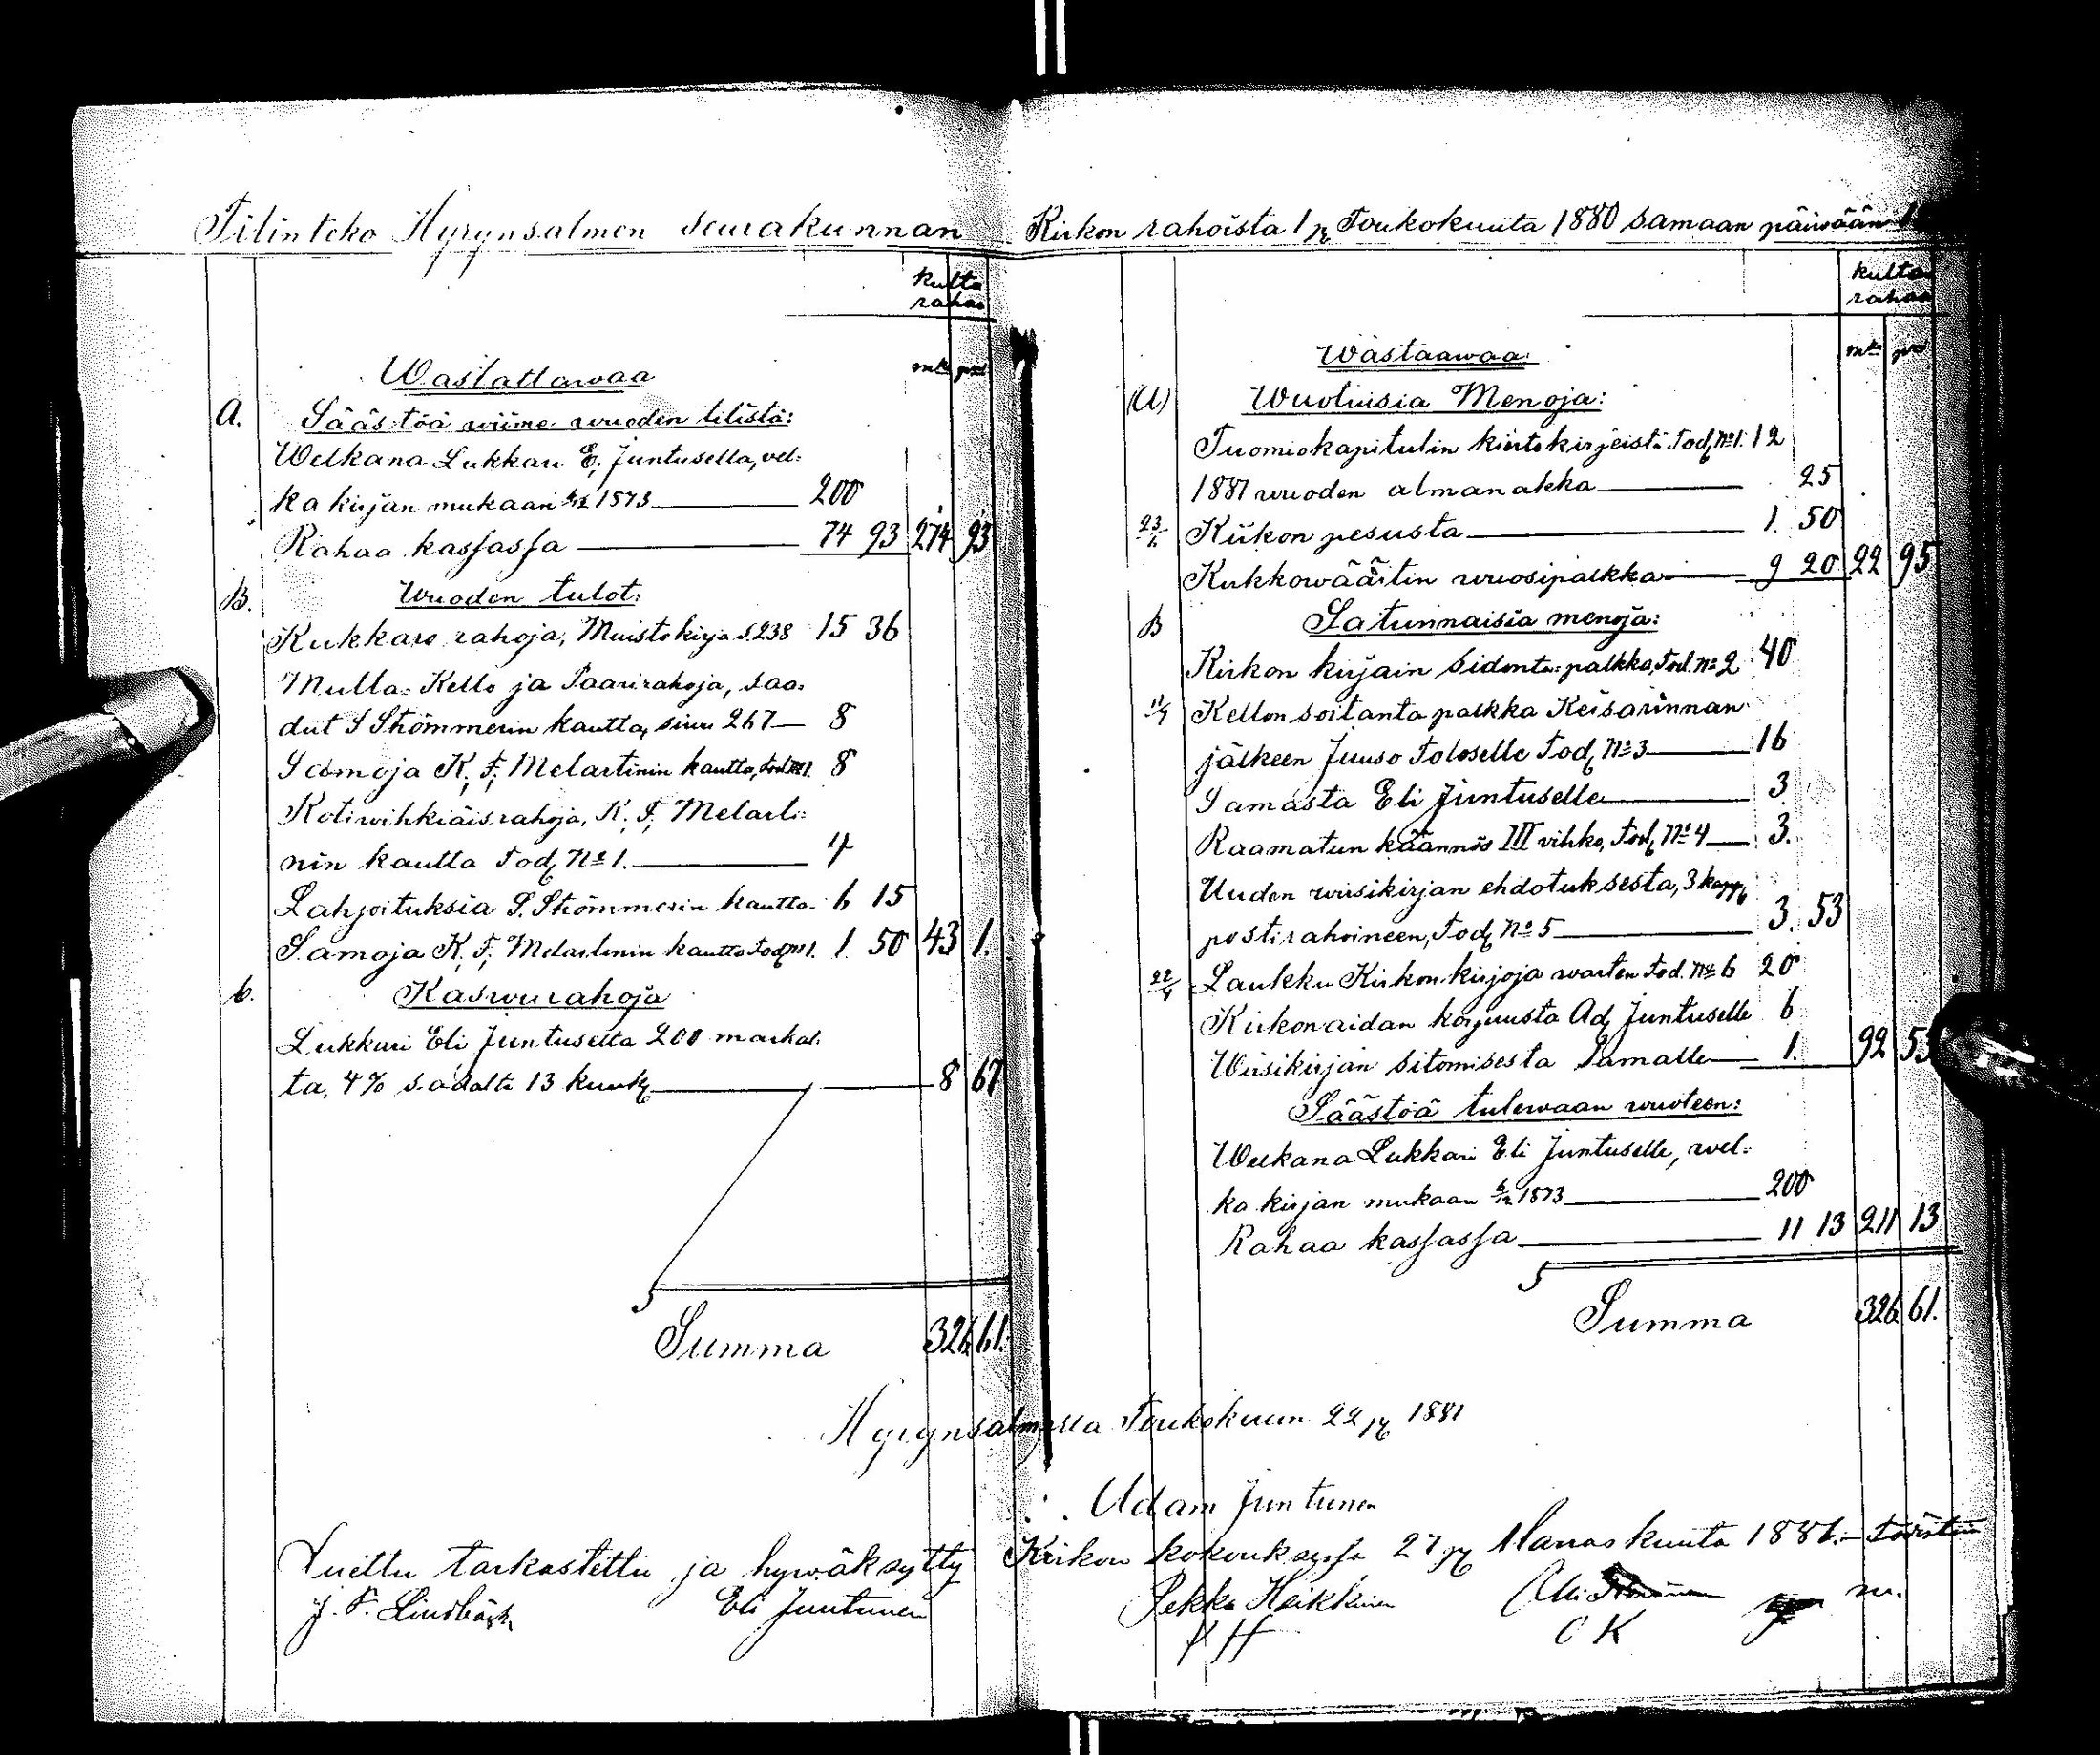 Tilinteko Hyrynsalmen seurakunnan
kulta
rahaa
Wastattawaa mk: pni
A. Säästöä wiime wuoden tilistä:
Welkana Lukkari E. Juntusella, vel-
ka kirjan mukaan 6/12 1873 200
Rahaa kassassa 74 93 274 93
B. Wuoden tulot:
Kukkaro rahoja, Muistokirja S.238 15 36
Multa- Kello ja Paarirahoja, saa-
dut S Strömmerin kautta, siwu 267 8
Samoja K. F. Melartinin kautta, tod. No 1. 8
Kotiwihkiäisrahoja, K. F. Melarti-
nin kautta Tod. No 1. 4
Lahjoituksia S. Strömmerin kautta 6 15
Samoja K. F. Melartinin kautta Tod. No 1. 1. 50 43 1.
C. Kaswurahoja
Lukkari Eli Juntuselta 200 markal-
ta, 4% sadalta 13 kuuk. 8 67
Summa 326 61.
Kirkon rahoista 1 p. Toukokuuta 1880 samaan päiwään
kulta
rahaa
Wastaawaa: mk: pni
(A) Wuotuisia Menoja:
Tuomiokapitulin kiertokirjeistä Tod. No 1. 12
1881 wuoden almanakka 25
Kirkon pesusta 1. 50
Kukkowäärtin wuosipalkka 9 20 22 95
B Satunnaisia menoja:
Kirkon kirjain sidonta-palkka, Tod. No 2 40
11/4 Kellon soitanta palkka Keisarinnan
jälkeen Juuso Toloselle Tod. No 3 16
Samasta Eli Juntuselle 3
Raamatun käännös III vihko, Tod. No 4 3.
Uuden wirsikirjan ehdotuksesta, 3 kapp.
postirahoineen, Tod. No 5 3. 53
22/4 Laukku Kirkon kirjoja warten Tod. No 6 20
Kirkonaidan korjuusta Ad. Juntuselle 6
Wirsikirjan sitomisesta Samalle 1. 92 53
Säästöä tulewaan wuoteen:
Welkana Lukkari Eli Juntuselle, wel-
ka kirjan mukaan 6/12 1873 200
Rahaa kassassa 11 13 211 13
Summa 326 61.
Hyrynsalmessa Toukokuun 22 p. 1881
Adam Juntunen
Luettu tarkastettu ja hywäksytty Kirkon kokouksessa 27 p. Marraskuuta 1881. todistaa
J. F. Lindbäck Eli Juntunen Pekka Heikkinen
P H O K